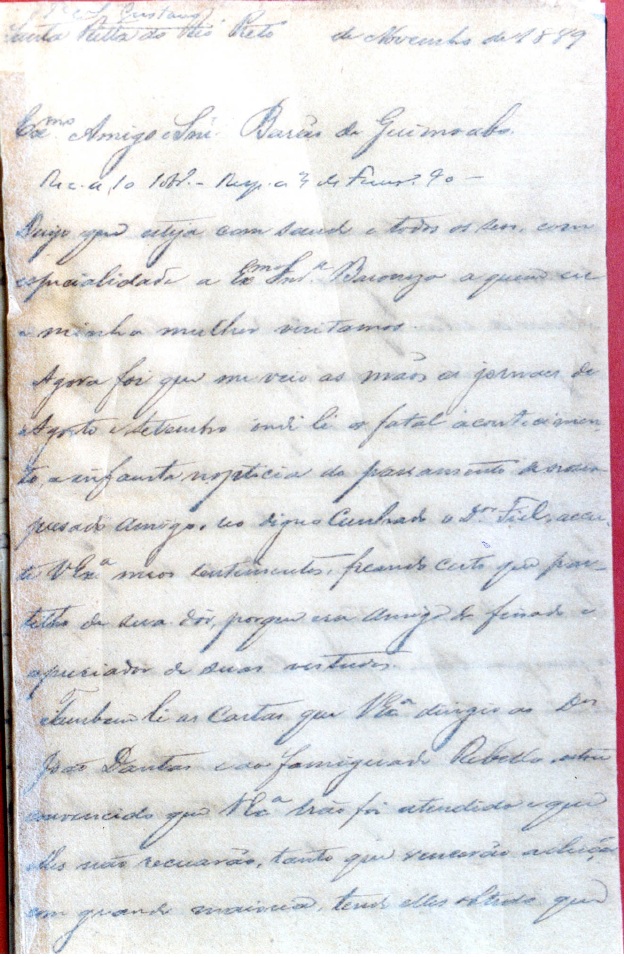 Santa Ritta do Rio Preto de Novembro de 1889
Exmo Amigo e Snr. Barão de Geremoabo.
Rec. a 10 - Resp. a 3 de Fever. 90 -
Dezejo que esteja com saude e todos os seus, com
especialidade a Exma Snra. Baroneza a quem eu
e minha mulher visitamos.
Agora foi que me veio as mãos os jornaes de
Agosto e Setembro onde li o fatal aconticimen-
to a infausta nopticia do passamento de nosso
presado amigo, seo digno Cunhado o Dor. Fiel, accei-
te VExa meos sentimentos, ficando certo que par-
tilho de sua dôr, porque era amigo do finado e
apreciador de suas vertudes.
Tambem li as Cartas que VExa dirigio ao Dor
João Dantas e ao famigerado Rebello, estou
convencido que VExa não foi atendido e que
elles não recuarão, tanto que vencerão a eleição
com grande maioria, tendo elles obtido que